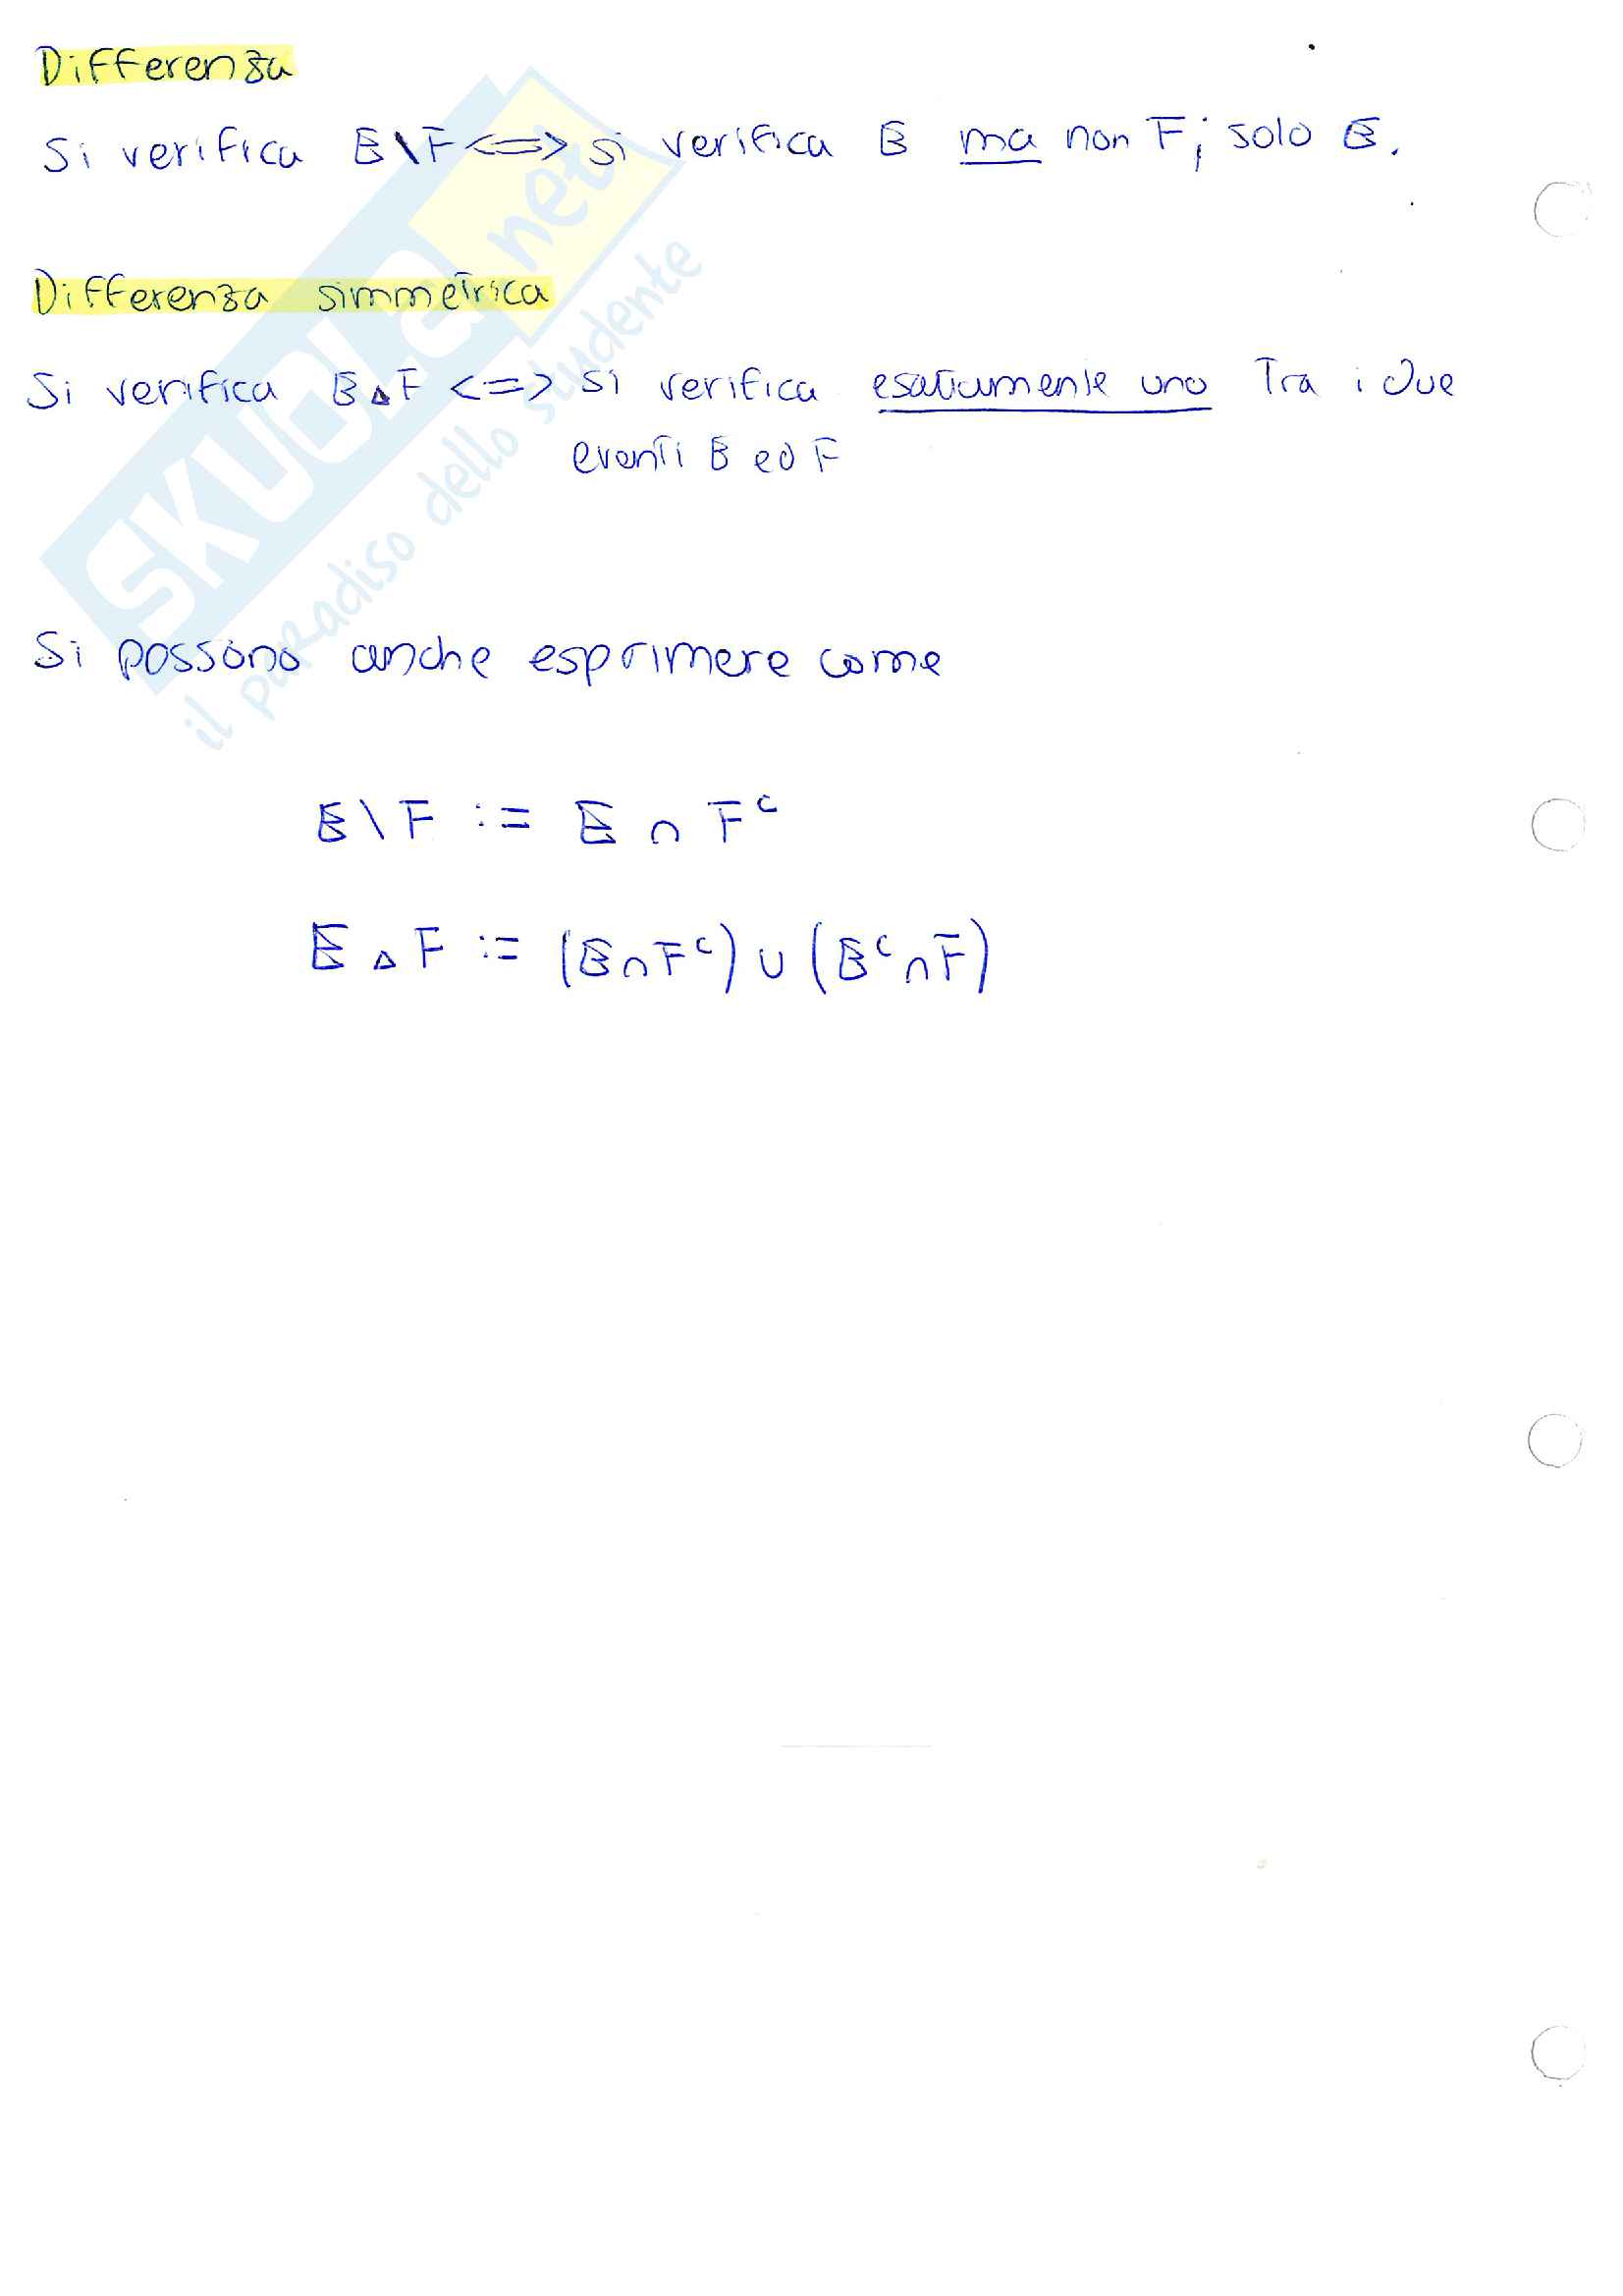 Differenza
Si verifica E\F <=> si verifica E ma non F; solo E.
Differenza simmetrica
Si verifica E△F <=> si verifica esattamente uno tra i due
eventi E ed F
Si possono anche esprimere come
E\F := E ∩ Fᶜ
E △ F := (E∩Fᶜ) ∪ (Eᶜ∩F)
SKUOLa.net
il paradiso dello studente